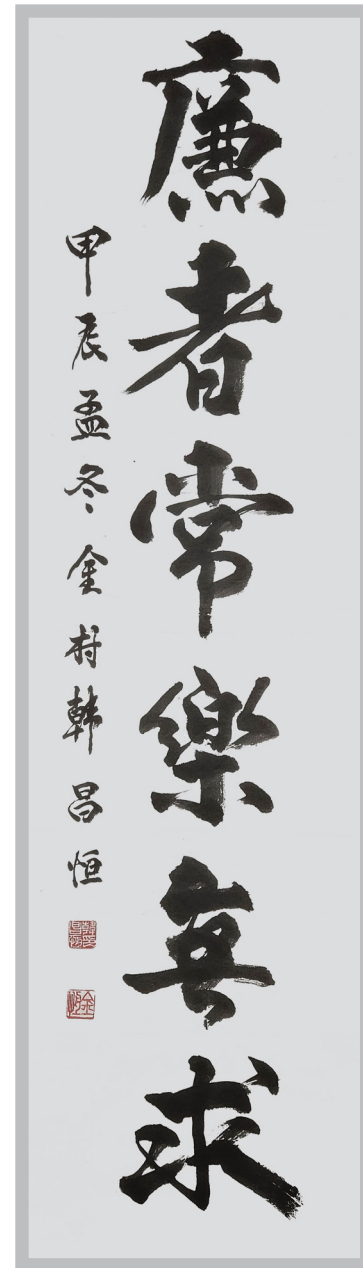 廉者常樂無求
甲辰孟冬金村韓昌恒